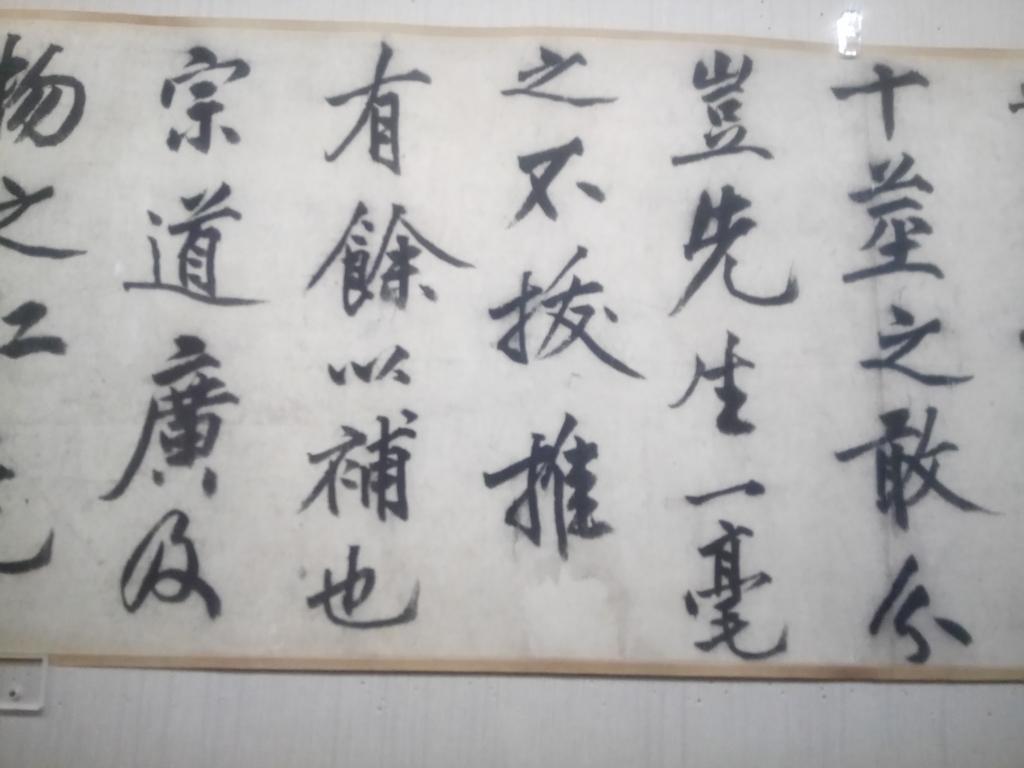 十莖之敢分
豈先生一毫
之不拔推
有餘以補也
宗道廣及
物之工